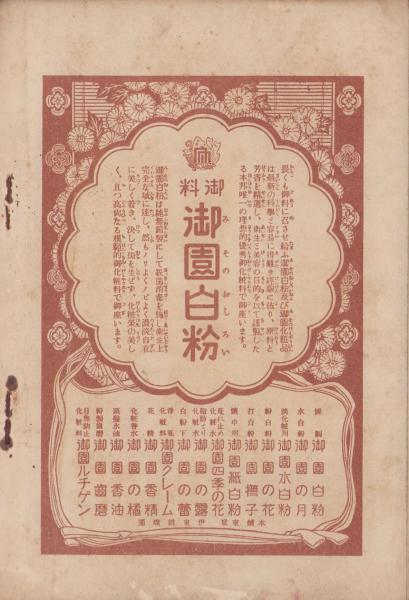 御料
御園白粉
みそのおしろい
畏くも御料に召させ給ふ御園白粉及び御園化粧品
は最新の科學と容易に得難き經驗に依り、原料と
芳香を精選し、衛生と美容の目的を以て謹製した
る本邦唯一の理想的優秀御化粧料で御座います。
御園白粉は純無鉛製にして殺菌消毒を施し、衛生上
完全な域に達し、然もノリよくノビよく濃淡自在
に美しく着き、決して斑を生ぜず、化粧榮の美し
く、且つ高尚なる模範的御化粧料で御座います。
御園白粉
水白粉 御園の月
淡化粧用 御園水白粉
粉白粉 御園の花
打白粉 御園撫子
懷中用 御園紙白粉
化粧水 御園四季の花
化粧水 御園の露
白粉下 御園の蕾
化粧料 御園クレーム
花精 御園香精
化粧香水 御園の橘
高級水油 御園香油
粉製 御園齒磨
日燒防止化粧料 御園ルチゲン
本舖 東京 伊東胡蝶園